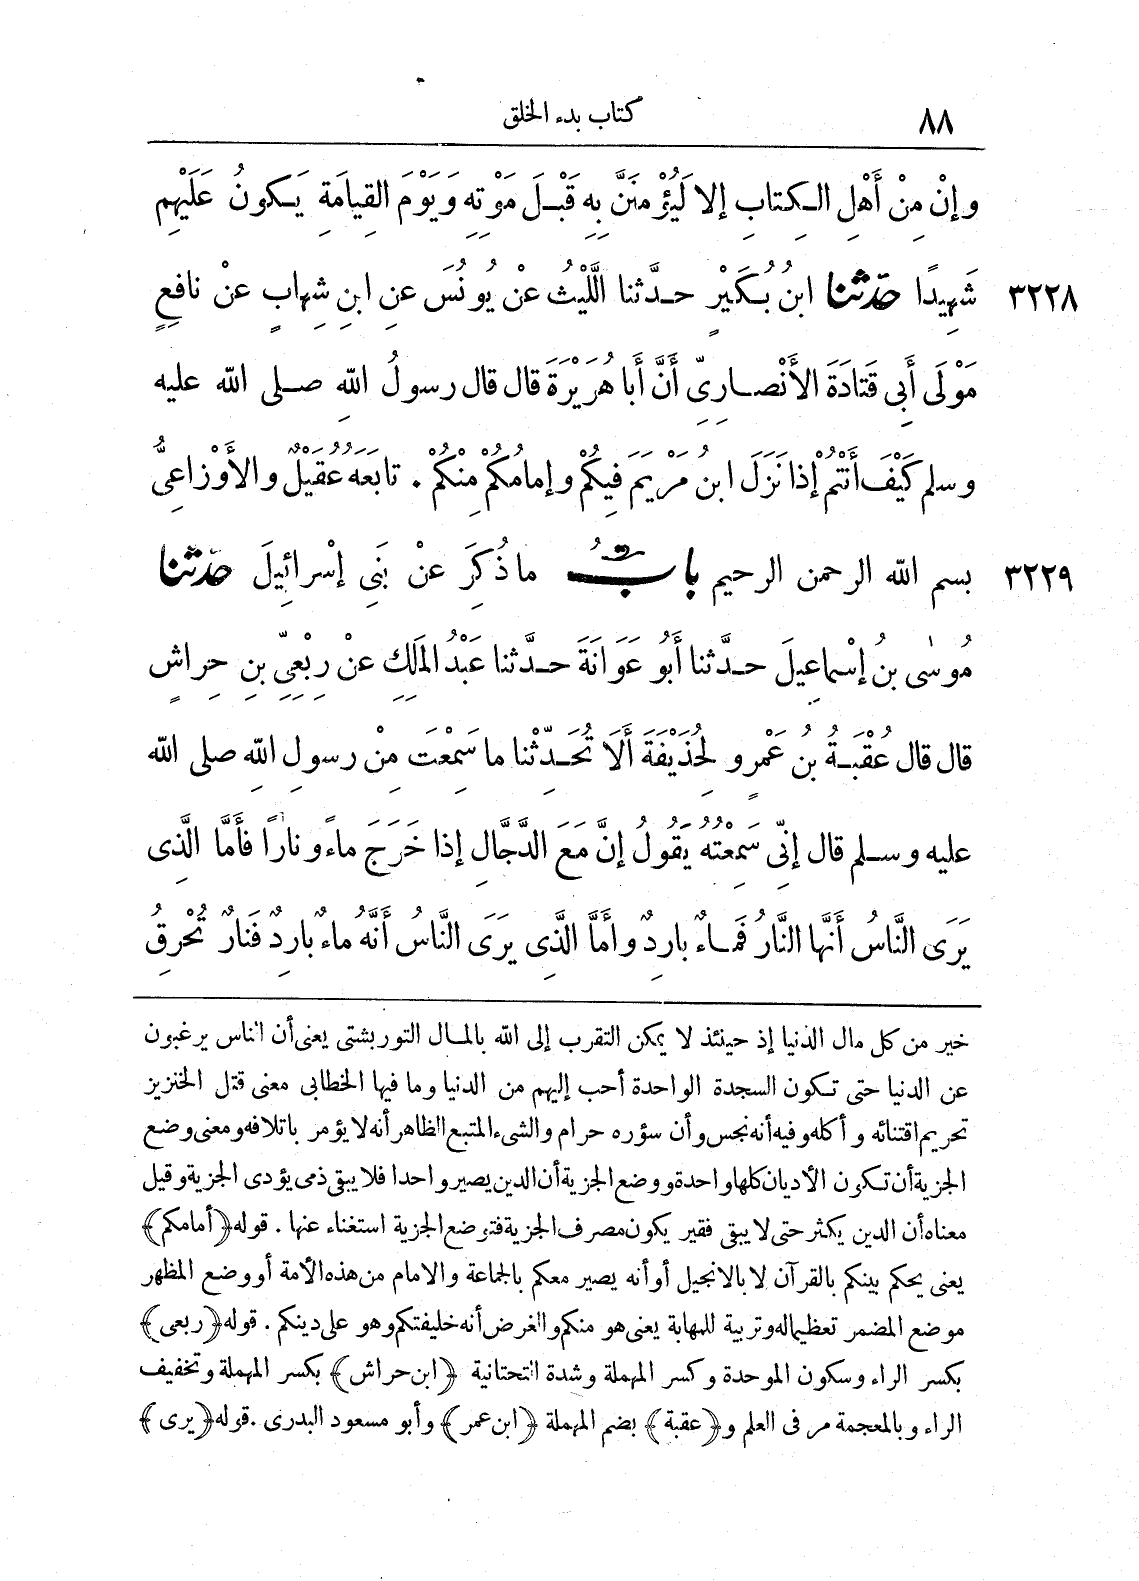 ٨٨
كتاب بدء الخلق
وإنْ مِنْ أَهْلِ الـكِتابِ إلا لَيُؤْمِنَنَّ بِهِ قَبْـلَ مَوْتِهِ وَيَوْمَ القِيامَةِ يَـكونُ عَلَيْهِم
٣٢٢٨ شَهِيدًا حَدَّثنا ابنُ بُـكَيْرٍ حـدَّثنا اللَّيْثُ عنْ يُونُسَ عنِ ابنِ شِهابٍ عنْ نافِعٍ
مَوْلَى أَبِي قَتادَةَ الأَنْصـارِيِّ أَنَّ أَبا هُرَيْرَةَ قال قال رسولُ اللهِ صـلى الله عليه
وسلم كَيْفَ أَنْتُمْ إذا نَزَلَ ابنُ مَرْيَمَ فِيكُمْ وإمامُكُمْ مِنْكُمْ . تابَعَهُ عُقَيْلٌ والأَوْزاعِيُّ
٣٢٢٩ بسم الله الرحمن الرحيم بابُ ما ذُكِرَ عنْ بَنِي إسْرائِيلَ حَدَّثنا
مُوسٰى بنُ إسْماعِيلَ حـدَّثنا أَبُو عَوَانَةَ حـدَّثنا عَبْدُ المَلِكِ عنْ رِبْعِيِّ بنِ حِراشٍ
قال قال عُقْبَـةُ بنُ عَمْرٍو لِحُذَيْفَةَ أَلَا تُحَـدِّثْنا ما سَمِعْتَ مِنْ رسولِ الله صلى الله
عليه وسـلم قال إنِّي سَمِعْتُهُ يَقُولُ إنَّ مَعَ الدَّجَّالِ إذا خَرَجَ ماءً ونارًا فأَمَّا الَّذِي
يَرَى النَّاسُ أَنَّها النَّارُ فَمـاءٌ بارِدٌ وأَمَّا الَّذِي يرَى النَّاسُ أَنَّهُ ماءٌ بارِدٌ فَنارٌ تُحْرِقُ
خير من كل مال الدنيا إذ حينئذ لا يمكن التقرب إلى الله بالمـال التوربشتى يعنى أن الناس يرغبون
عن الدنيا حتى تـكون السجدة الواحدة أحب إليهم من الدنيا وما فيها الخطابى معنى قتل الخنزيز
تحريم اقتنائه وأكله وفيه أنه نجس وأن سؤره حرام والشىء المتبع الظاهر أنه لا يؤمر باتلافه ومعنى وضع
الجزية أن تـكون الأديان كلها واحدة ووضع الجزية أن الدين يصير واحدا فلا يبقى ذمى يؤدى الجزية وقيل
معناه أن الدين يكثر حتى لا يبقى فقير يكون مصرف الجزية فتوضع الجزية استغناء عنها . قوله ﴿أمامكم﴾
يعنى يحكم بينكم بالقرآن لا بالانجيل أو أنه يصير معكم بالجماعة والامام من هذه الأمة أو وضع المظهر
موضع المضمر تعظيما له وتربية للمهابة يعنى هو منكم والغرض أنه خليفتكم وهو على دينكم . قوله ﴿ربعى﴾
بكسر الراء وسكون الموحدة وكسر المهملة وشدة التحتانية ﴿ابن حراش﴾ بكسر المهملة وتخفيف
الراء وبالمعجمة مر فى العلم و﴿عقبة﴾ بضم المهملة ﴿ابن عمر﴾ وأبو مسعود البدرى . قوله ﴿يرى﴾